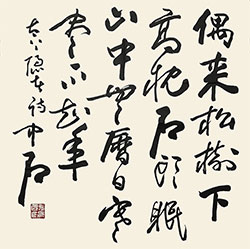 偶来松树下
高枕石头眠
山中无历日寒
尽不知年
太上隐者诗 中石